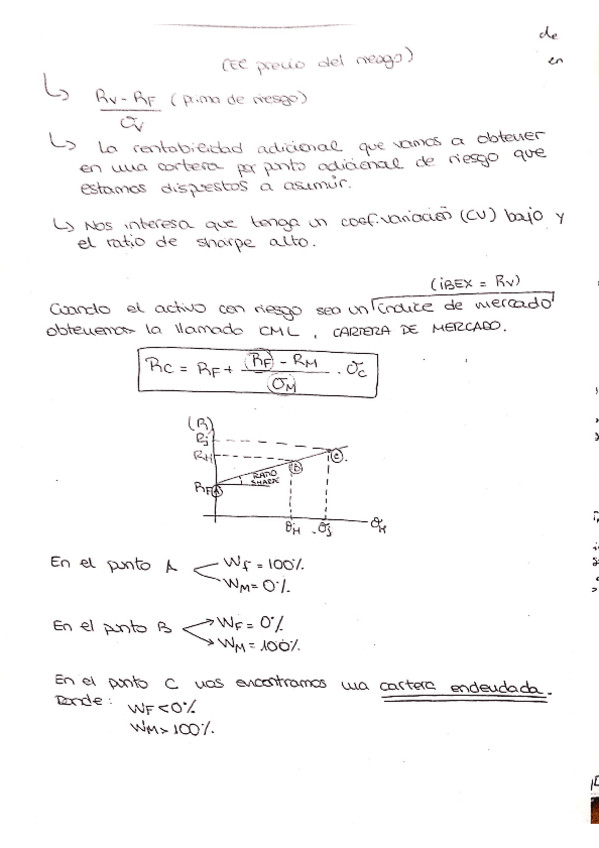 de
en
(El precio del riesgo)
↳ Rv - RF (prima de riesgo)
σv
↳ La rentabilidad adicional que vamos a obtener
en una cartera por punto adicional de riesgo que
estamos dispuestos a asumir.
↳ Nos interesa que tenga un coef.variación (CV) bajo y
el ratio de sharpe alto.
(iBEX = Rv)
Cuando el activo con riesgo sea un índice de mercado
obtenemos la llamado CML, CARTERA DE MERCADO.
RC = RF + RF - RM / σM . σC
(R)
Rj
RM
RF
A
B
C
RATIO
SHARPE
σM
σj
σM
En el punto A
Wf = 100%
WM = 0%
En el punto B
WF = 0%
WM = 100%
En el punto C nos encontramos una cartera endeudada.
Donde: WF < 0%
WM > 100%